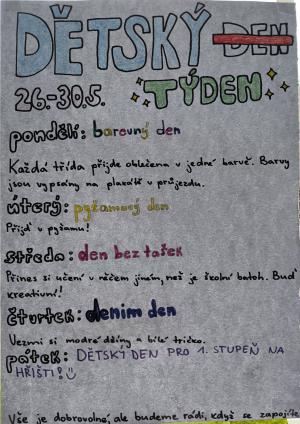 DĚTSKÝ DEN
26.-30.5. TÝDEN
pondělí: barevný den
Každá třída přijde oblečena v jedné barvě. Barvy
jsou vypsány na plakátě v průjezdu.
úterý: pyžamový den
Přijď v pyžamu!
středa: den bez tašek
Přines si učení v něčem jiném, než je školní batoh. Buď
kreativní!
čtvrtek: denim den
Vezmi si modré džíny a bílé tričko.
pátek: DĚTSKÝ DEN PRO 1. STUPEŇ NA
HŘIŠTI!
Vše je dobrovolné, ale budeme rádi, když se zapojíte